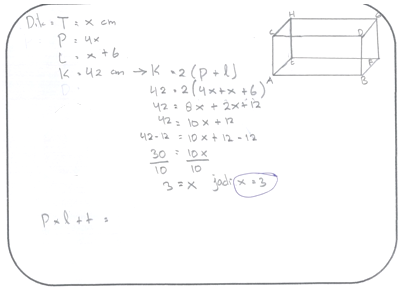 Dik = T = x cm
P = 4x
L = x + 6
K = 42 cm → K = 2 (P + l)
42 = 2 (4x + x + 6)
42 = 8x + 2x + 12
42 = 10x + 12
42 - 12 = 10x + 12 - 12
30 = 10x
10 10
3 = x jadi x = 3
P × l × t =
H
C D
C
A B